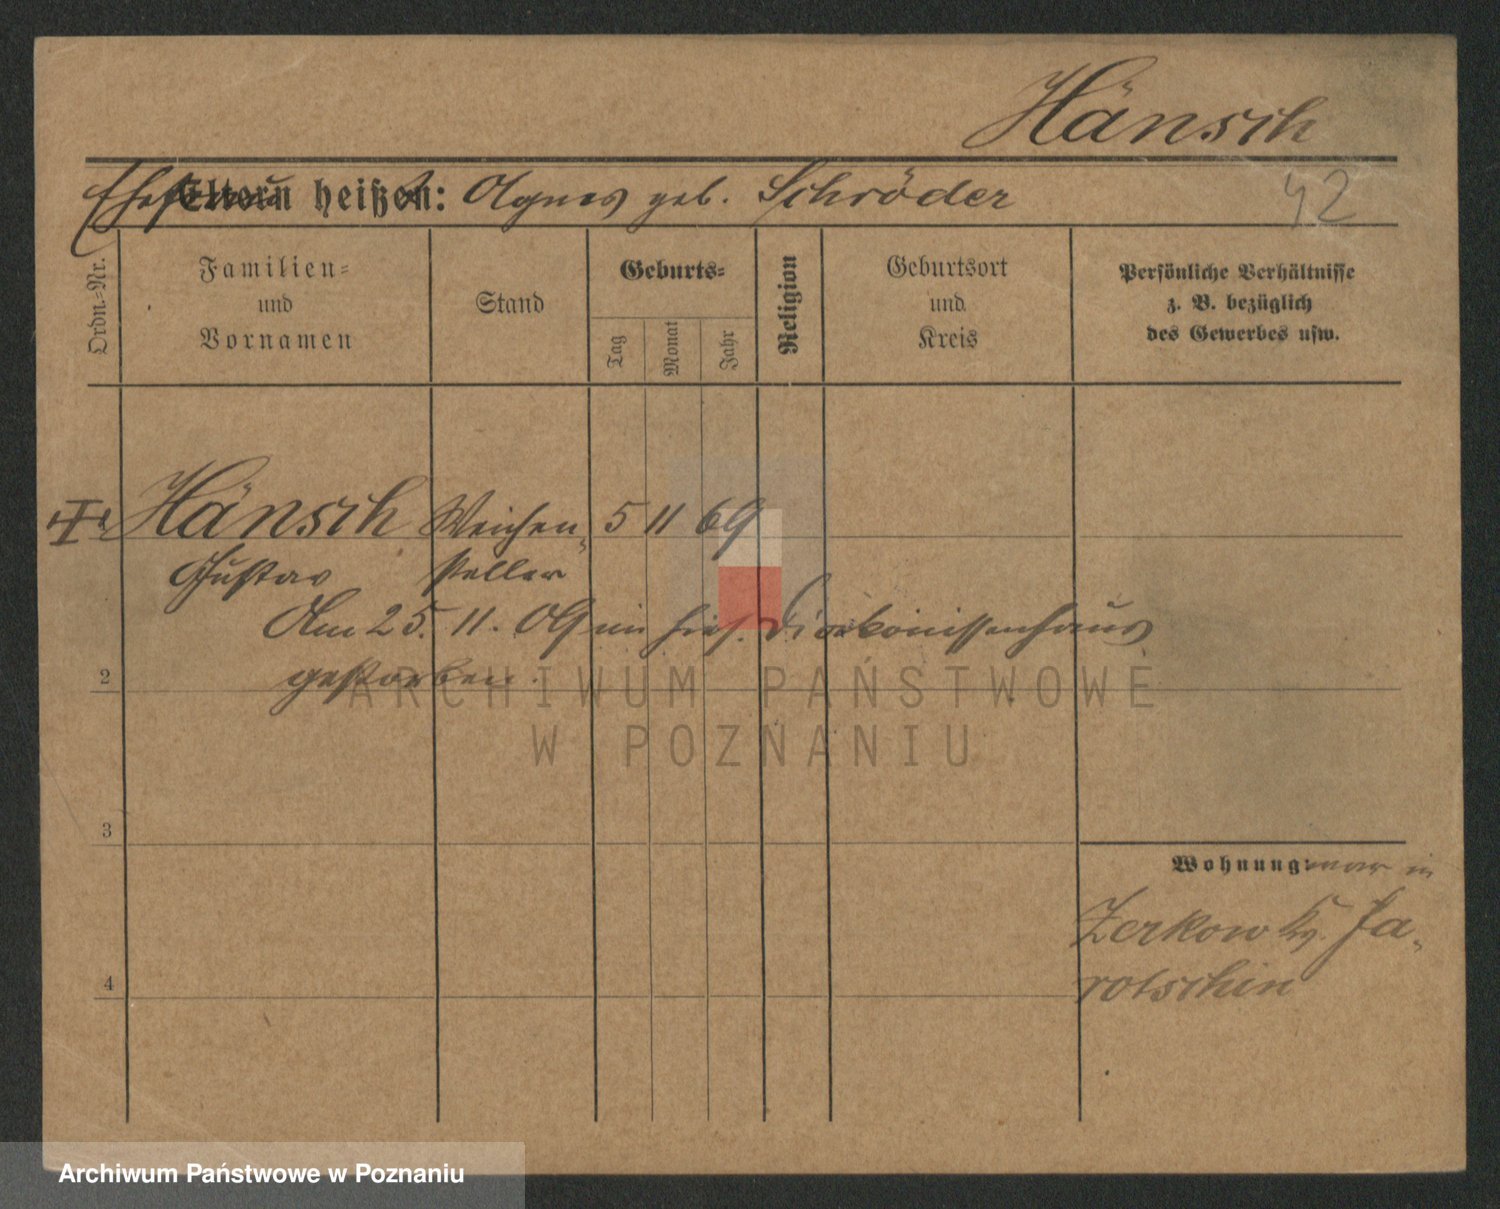 Hänsch
Ehefrau Eltern heißen: Agnes geb. Schröder
42
Ordn.=Nr.
Familien=
und
Vornamen
Stand
Geburts=
Tag
Monat
Jahr
Religion
Geburtsort
und
Kreis
Persönliche Verhältnisse
z. B. bezüglich
des Gewerbes usw.
Hänsch Weichen- 5 11 69
Gustav steller
Am 25. 11. 09 im hies. Diakonissenhaus
gestorben.
2
ARCHIWUM PAŃSTWOWE
W POZNANIU
3
Wohnung: war in
Zerkow Kr. Ja-
rotschin
4
Archiwum Państwowe w Poznaniu